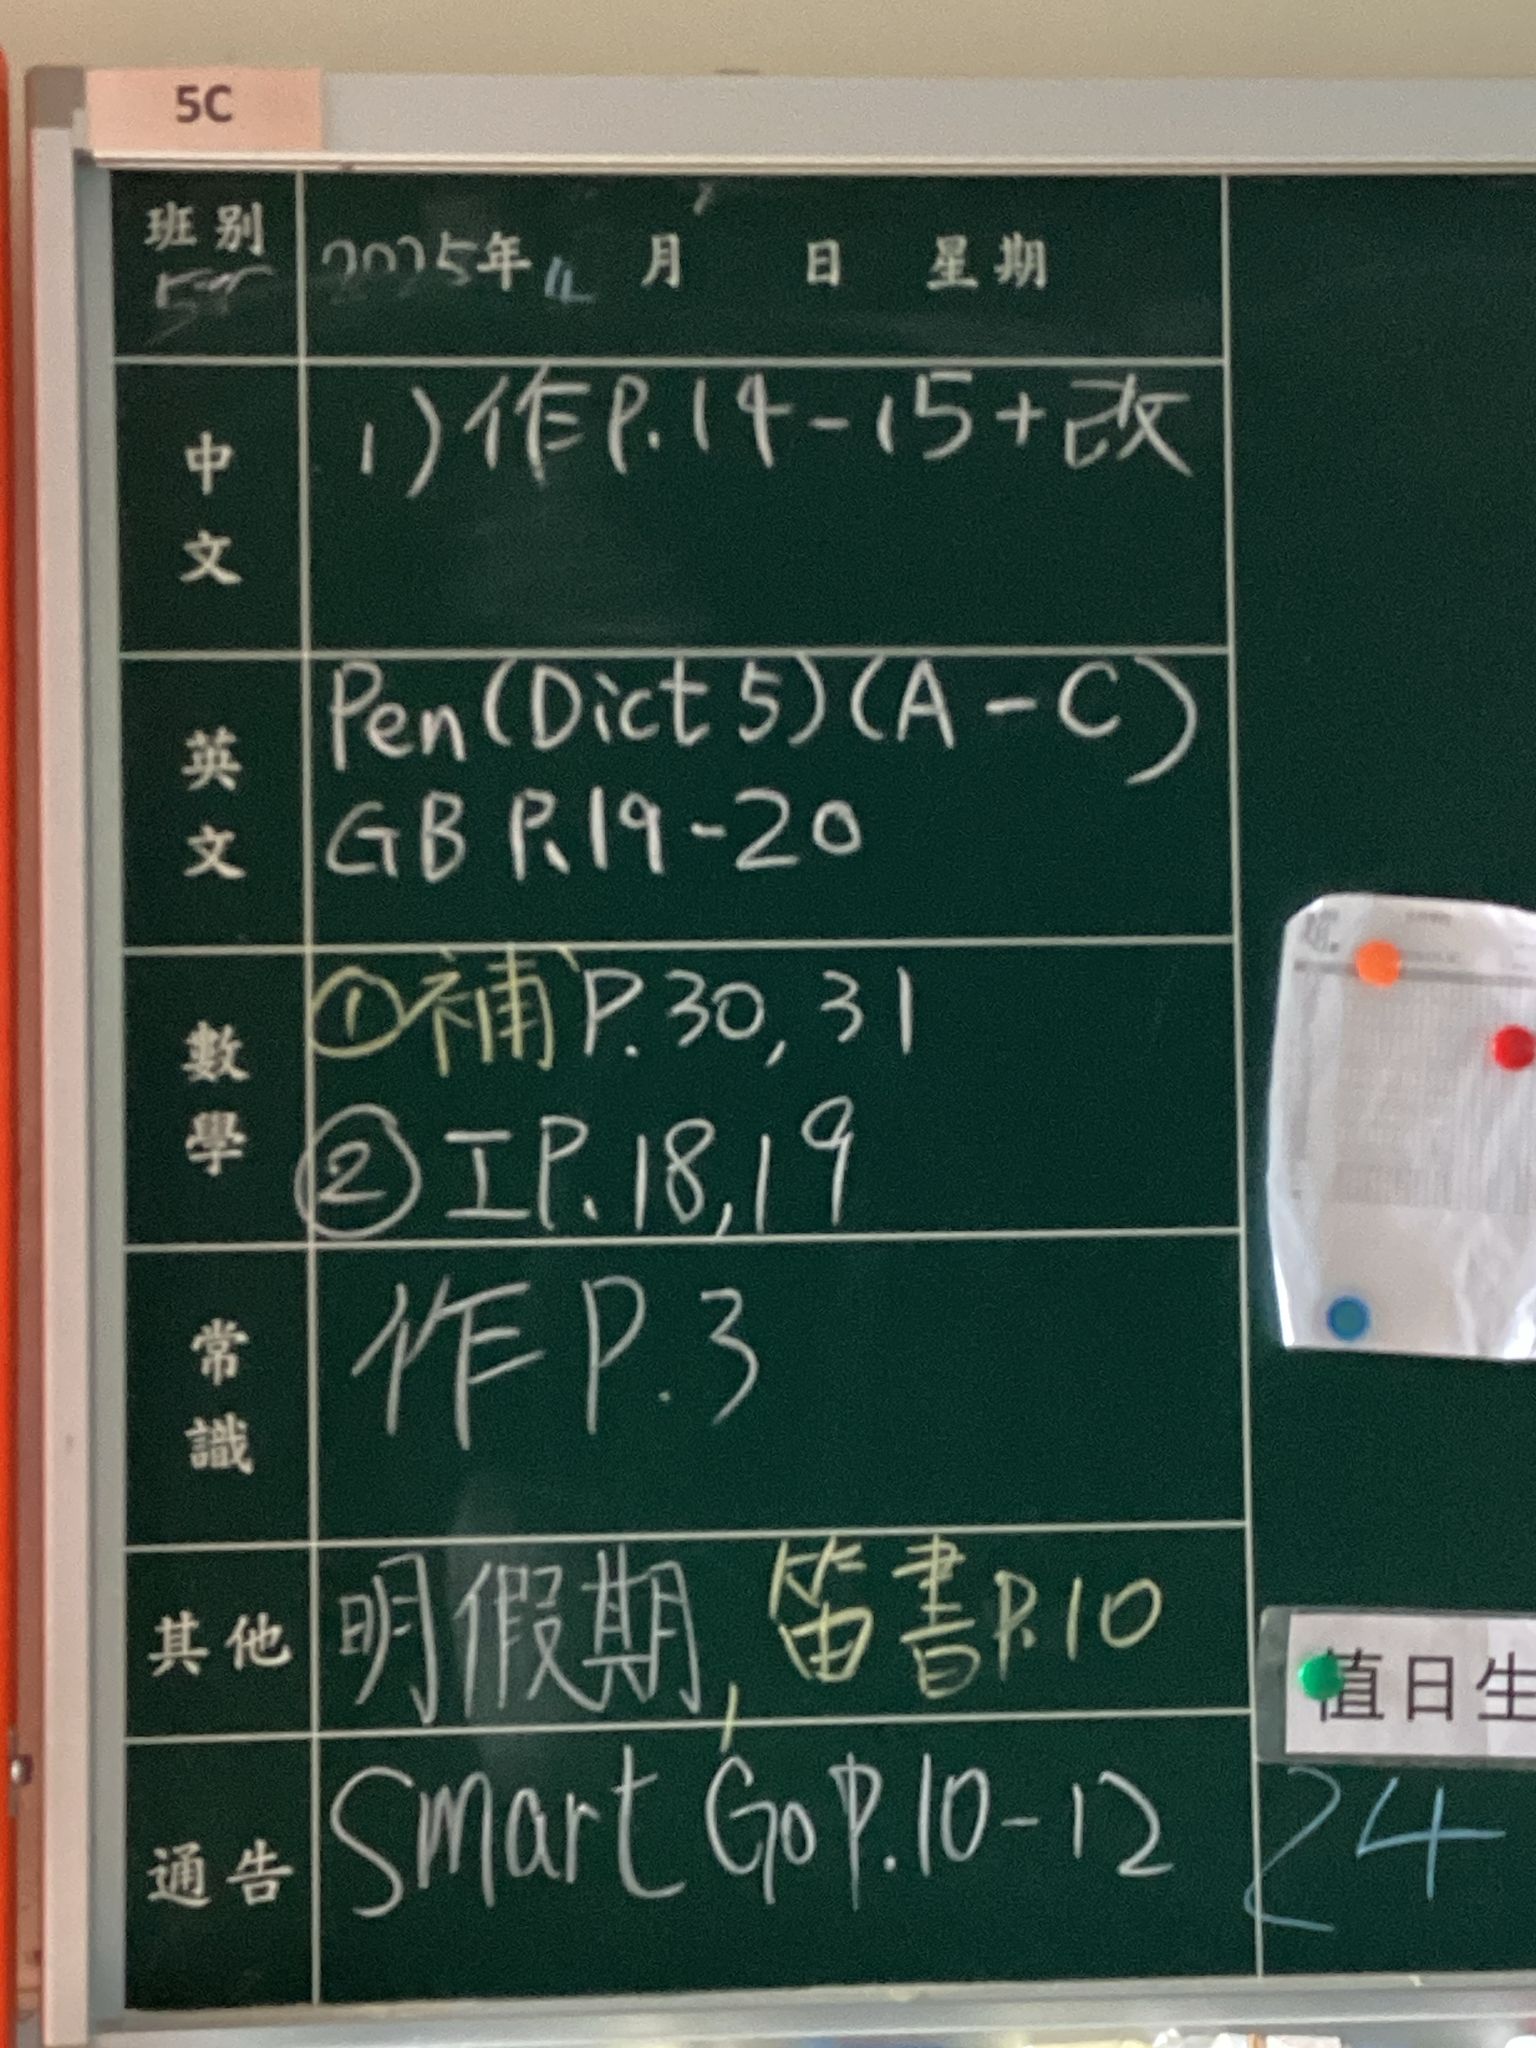 5C
班別 2025年 月 日 星期
中文
1) 作P.14-15+改
英文
Pen(Dict 5)(A-C)
GB P.19-20
數學
①補P.30, 31
②工P.18,19
常識
作P.3
其他
明假期, 笛書P.10
通告
Smart Go P.10-12
值日生
24